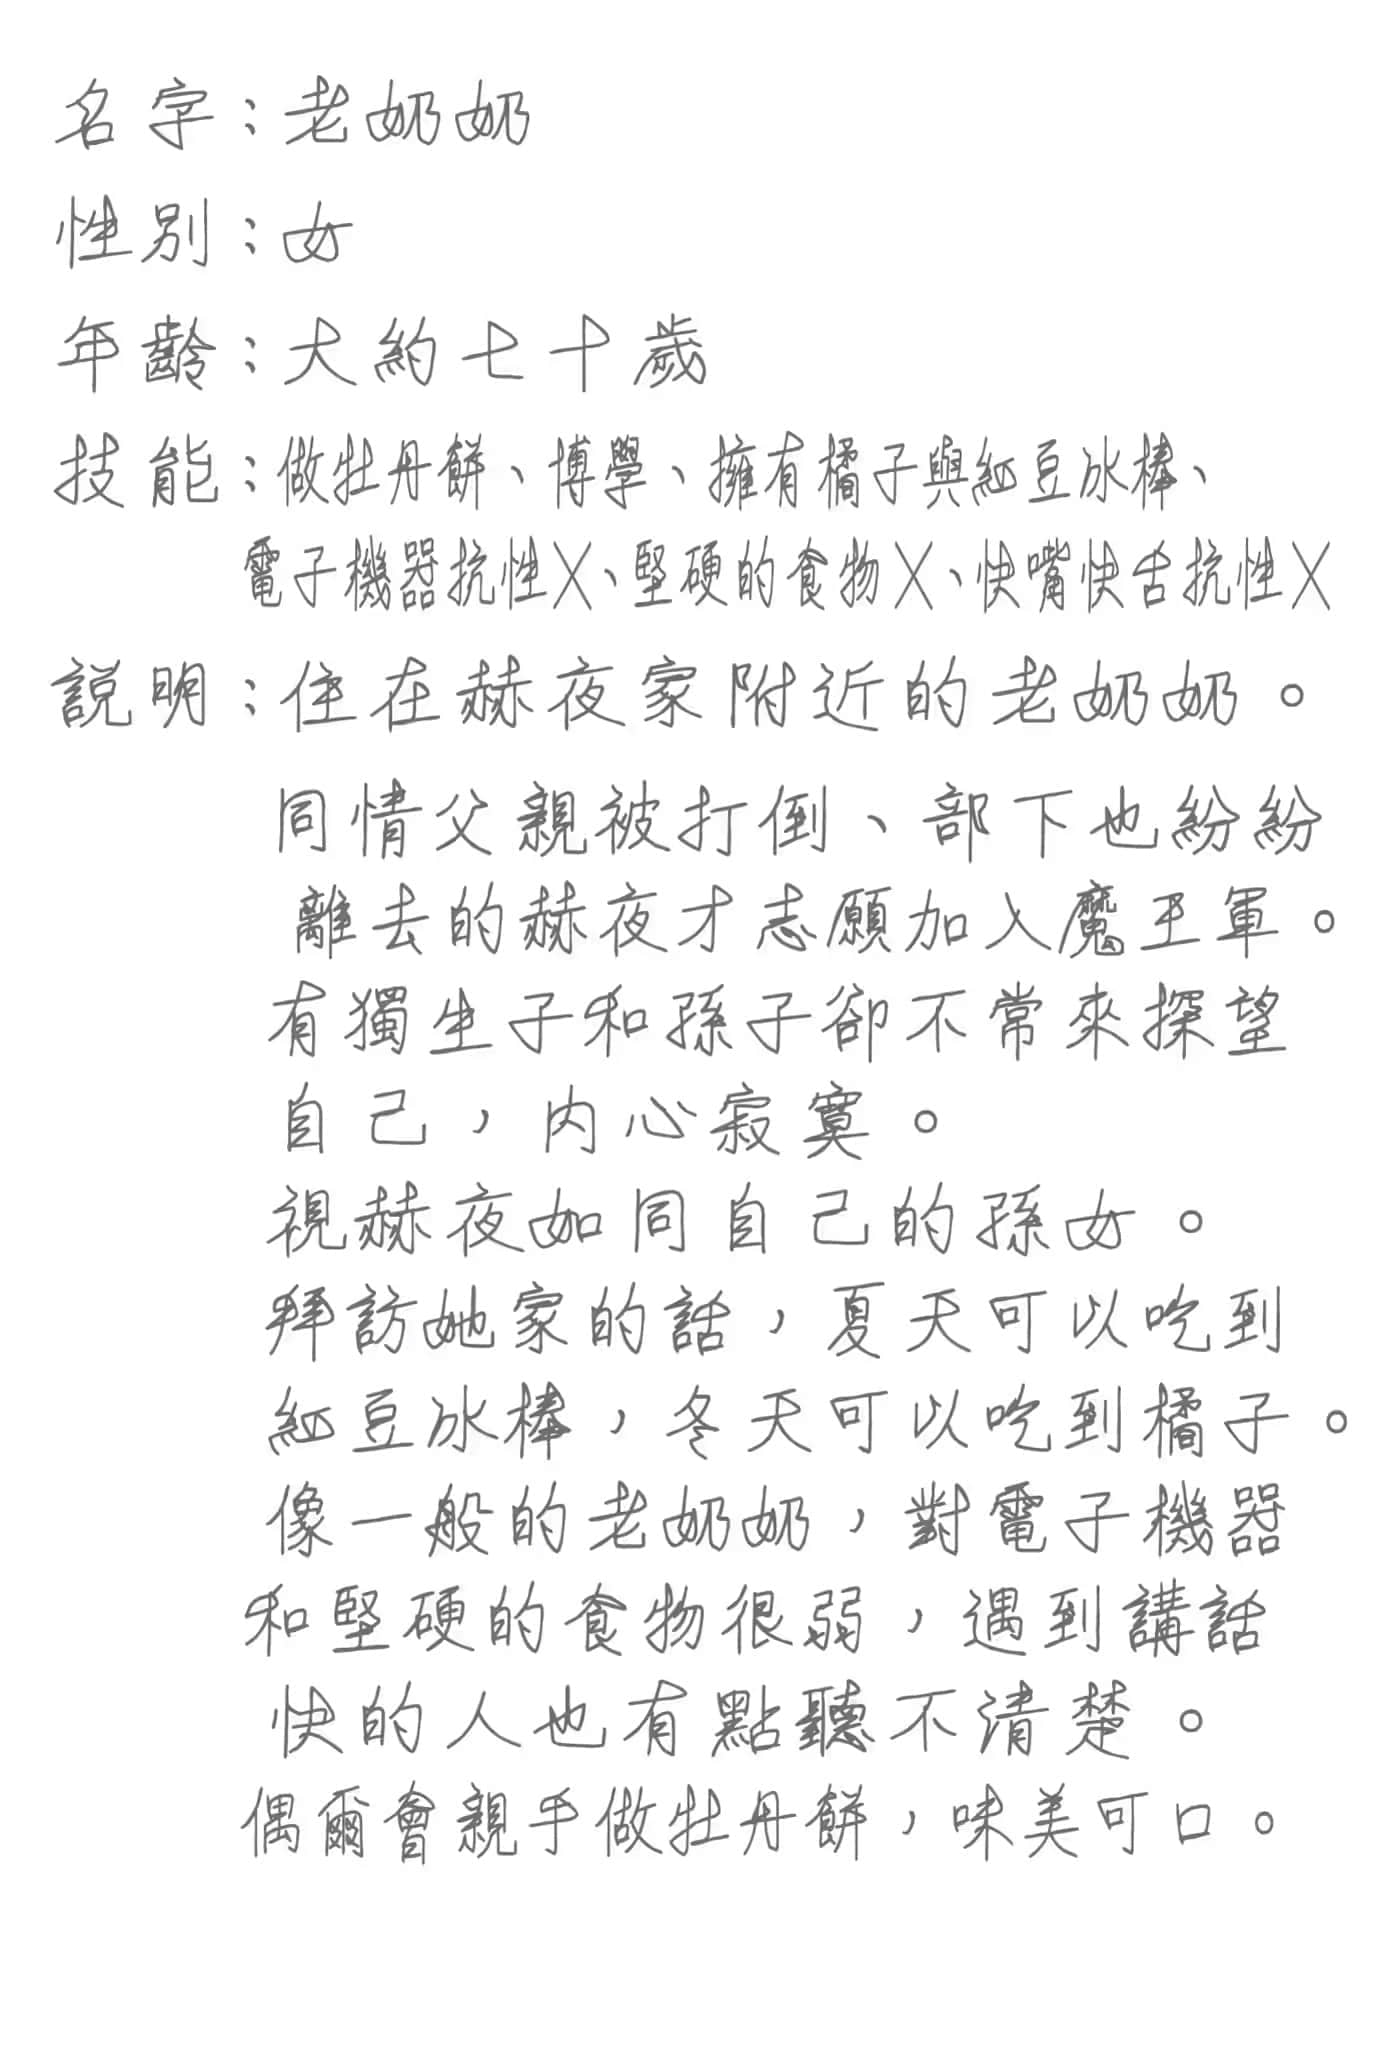 名字：老奶奶
性別：女
年齡：大約七十歲
技能：做牡丹餅、博學、擁有橘子與紅豆冰棒、
電子機器抗性X、堅硬的食物X、快嘴快舌抗性X
說明：住在赫夜家附近的老奶奶。
同情父親被打倒、部下也紛紛
離去的赫夜才志願加入魔王軍。
有獨生子和孫子卻不常來探望
自己，內心寂寞。
視赫夜如同自己的孫女。
拜訪她家的話，夏天可以吃到
紅豆冰棒，冬天可以吃到橘子。
像一般的老奶奶，對電子機器
和堅硬的食物很弱，遇到講話
快的人也有點聽不清楚。
偶爾會親手做牡丹餅，味美可口。